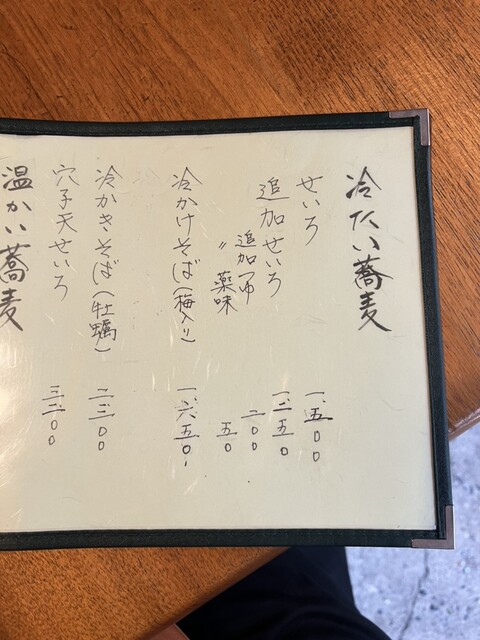 冷たい蕎麦
せいろ 一、五〇〇
追加せいろ 一、二五〇
追加つゆ 二〇〇
〃 薬味 五〇
冷かけそば(梅入り) 一、六五〇、
冷かきそば(牡蠣) 二、三〇〇
穴子天せいろ 三、二〇〇
温かい蕎麦